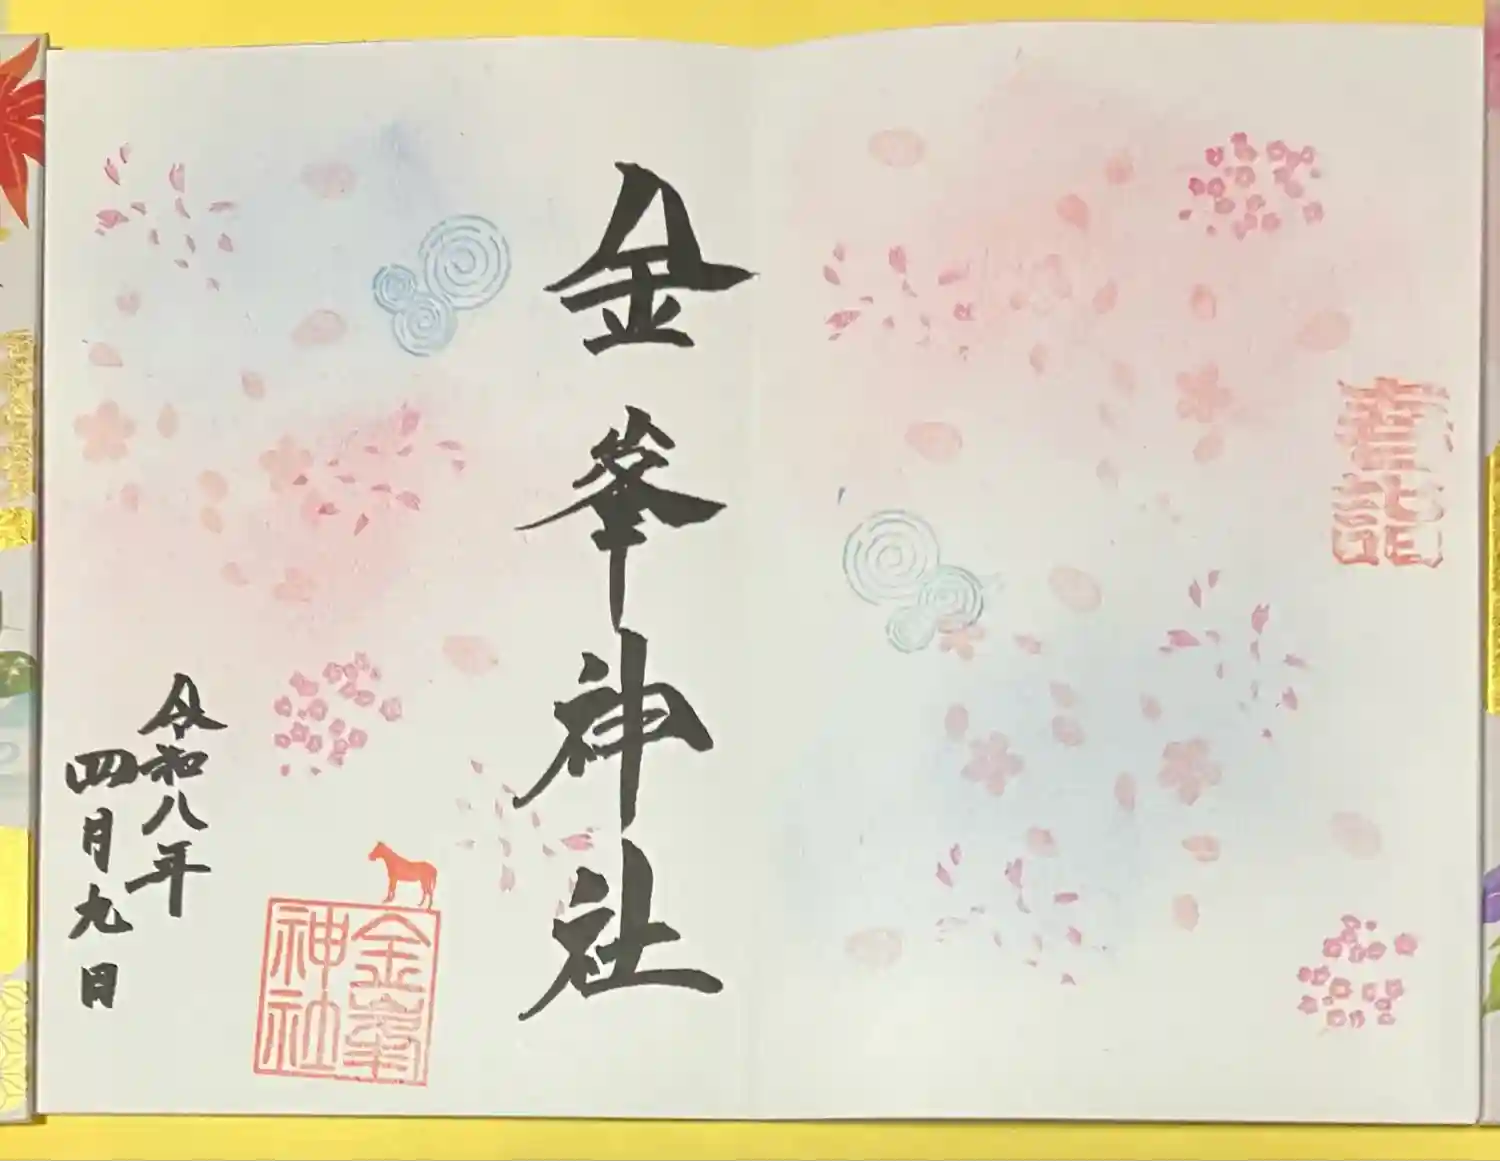 春詣
金峯神社
令和八年
四月九日
金峯
神社